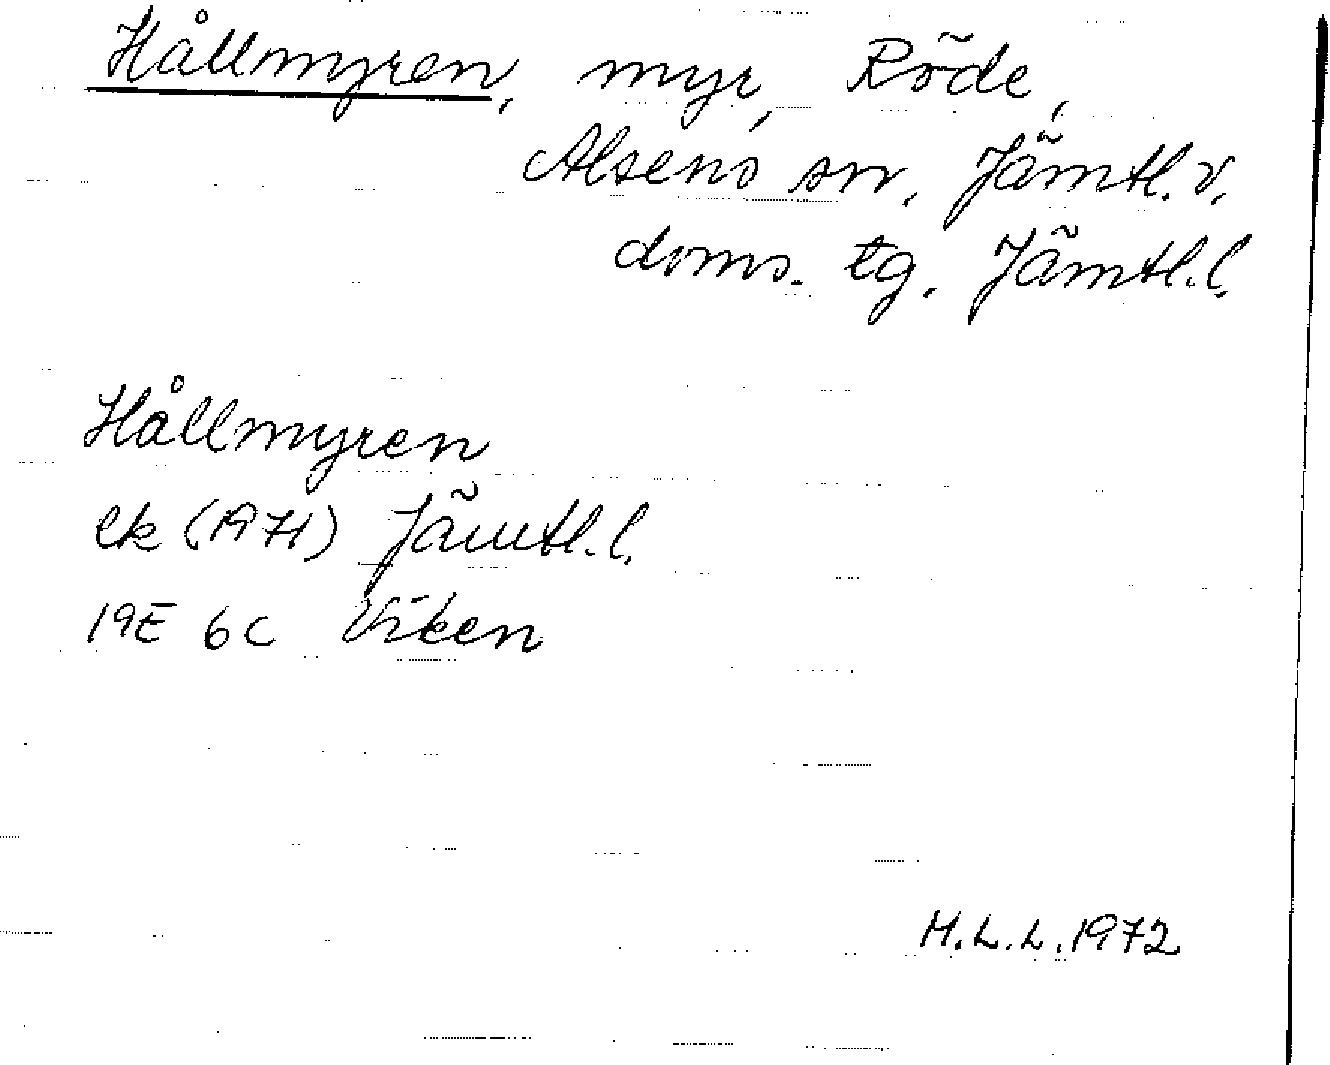 Hållmyren, myr, Röde,
Alsens sn, Jämtl. v.
doms. tg. Jämtl.l.
Hållmyren
ek (1971) Jämtl.l.
19E 6c Viken
M.L.L. 1972